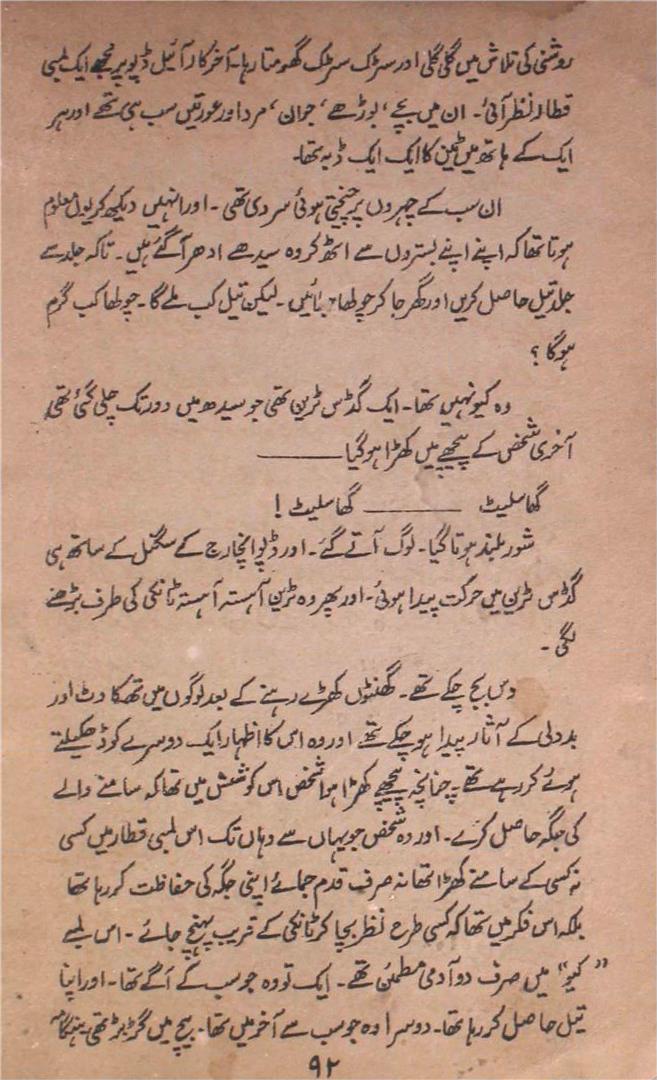 روشنی کی تلاش میں گلی گلی اور سڑک سڑک گھومتا رہا۔ آخر کار آئیل ڈپو پر مجھے ایک لمبی
قطار نظر آئی۔ ان میں بچے، بوڑھے، جوان، مرد اور عورتیں سب ہی تھے اور ہر
ایک کے ہاتھ میں ٹین کا ایک ایک ڈبہ تھا۔
ان سب کے چہروں پر چیختی ہوئی سردی تھی۔ اور انہیں دیکھ کر یوں معلوم
ہوتا تھا کہ اپنے اپنے بستروں سے اٹھ کر وہ سیدھے ادھر آ گئے ہیں۔ تاکہ جلد سے
جلد تیل حاصل کریں اور گھر جا کر چولھا جلائیں۔ لیکن تیل کب ملے گا۔ چولھا کب گرم
ہو گا؟
وہ کیو نہیں تھا۔ ایک گڈس ٹرین تھی جو سیدھ میں دور تک چلی گئی تھی،
آخری شخص کے پیچھے میں کھڑا ہو گیا ـــــــــ
گھاسلیٹ ـــــــــ گھاسلیٹ!
شور بلند ہوتا گیا۔ لوگ آتے گئے۔ اور ڈپو انچارج کے سگنل کے ساتھ ہی
گڈس ٹرین میں حرکت پیدا ہوئی۔ اور پھر وہ ٹرین آہستہ آہستہ ٹانکی کی طرف بڑھنے
لگی۔
دس بج چکے تھے۔ گھنٹوں کھڑے رہنے کے بعد لوگوں میں تھکاوٹ اور
بددلی کے آثار پیدا ہو چکے تھے اور وہ اس کا اظہار ایک دوسرے کو ڈھکیلتے
ہوئے کر رہے تھے۔ چنانچہ پیچھے کھڑا ہوا شخص اس کوشش میں تھا کہ سامنے والے
کی جگہ حاصل کرے۔ اور وہ شخص جو یہاں سے وہاں تک اس لمبی قطار میں کسی
نہ کسی کے سامنے کھڑا تھا نہ صرف قدم جمائے اپنی جگہ کی حفاظت کر رہا تھا
بلکہ اس فکر میں تھا کہ کسی طرح نظر بچا کر ٹانکی کے قریب پہنچ جائے۔ اس لمبے
”کیو“ میں صرف دو آدمی مطمئن تھے۔ ایک تو وہ جو سب کے آگے تھا۔ اور اپنا
تیل حاصل کر رہا تھا۔ دوسرا وہ جو سب سے آخر میں تھا۔ بیچ میں گڑبڑ تھی، ہنگامہ
۹۲